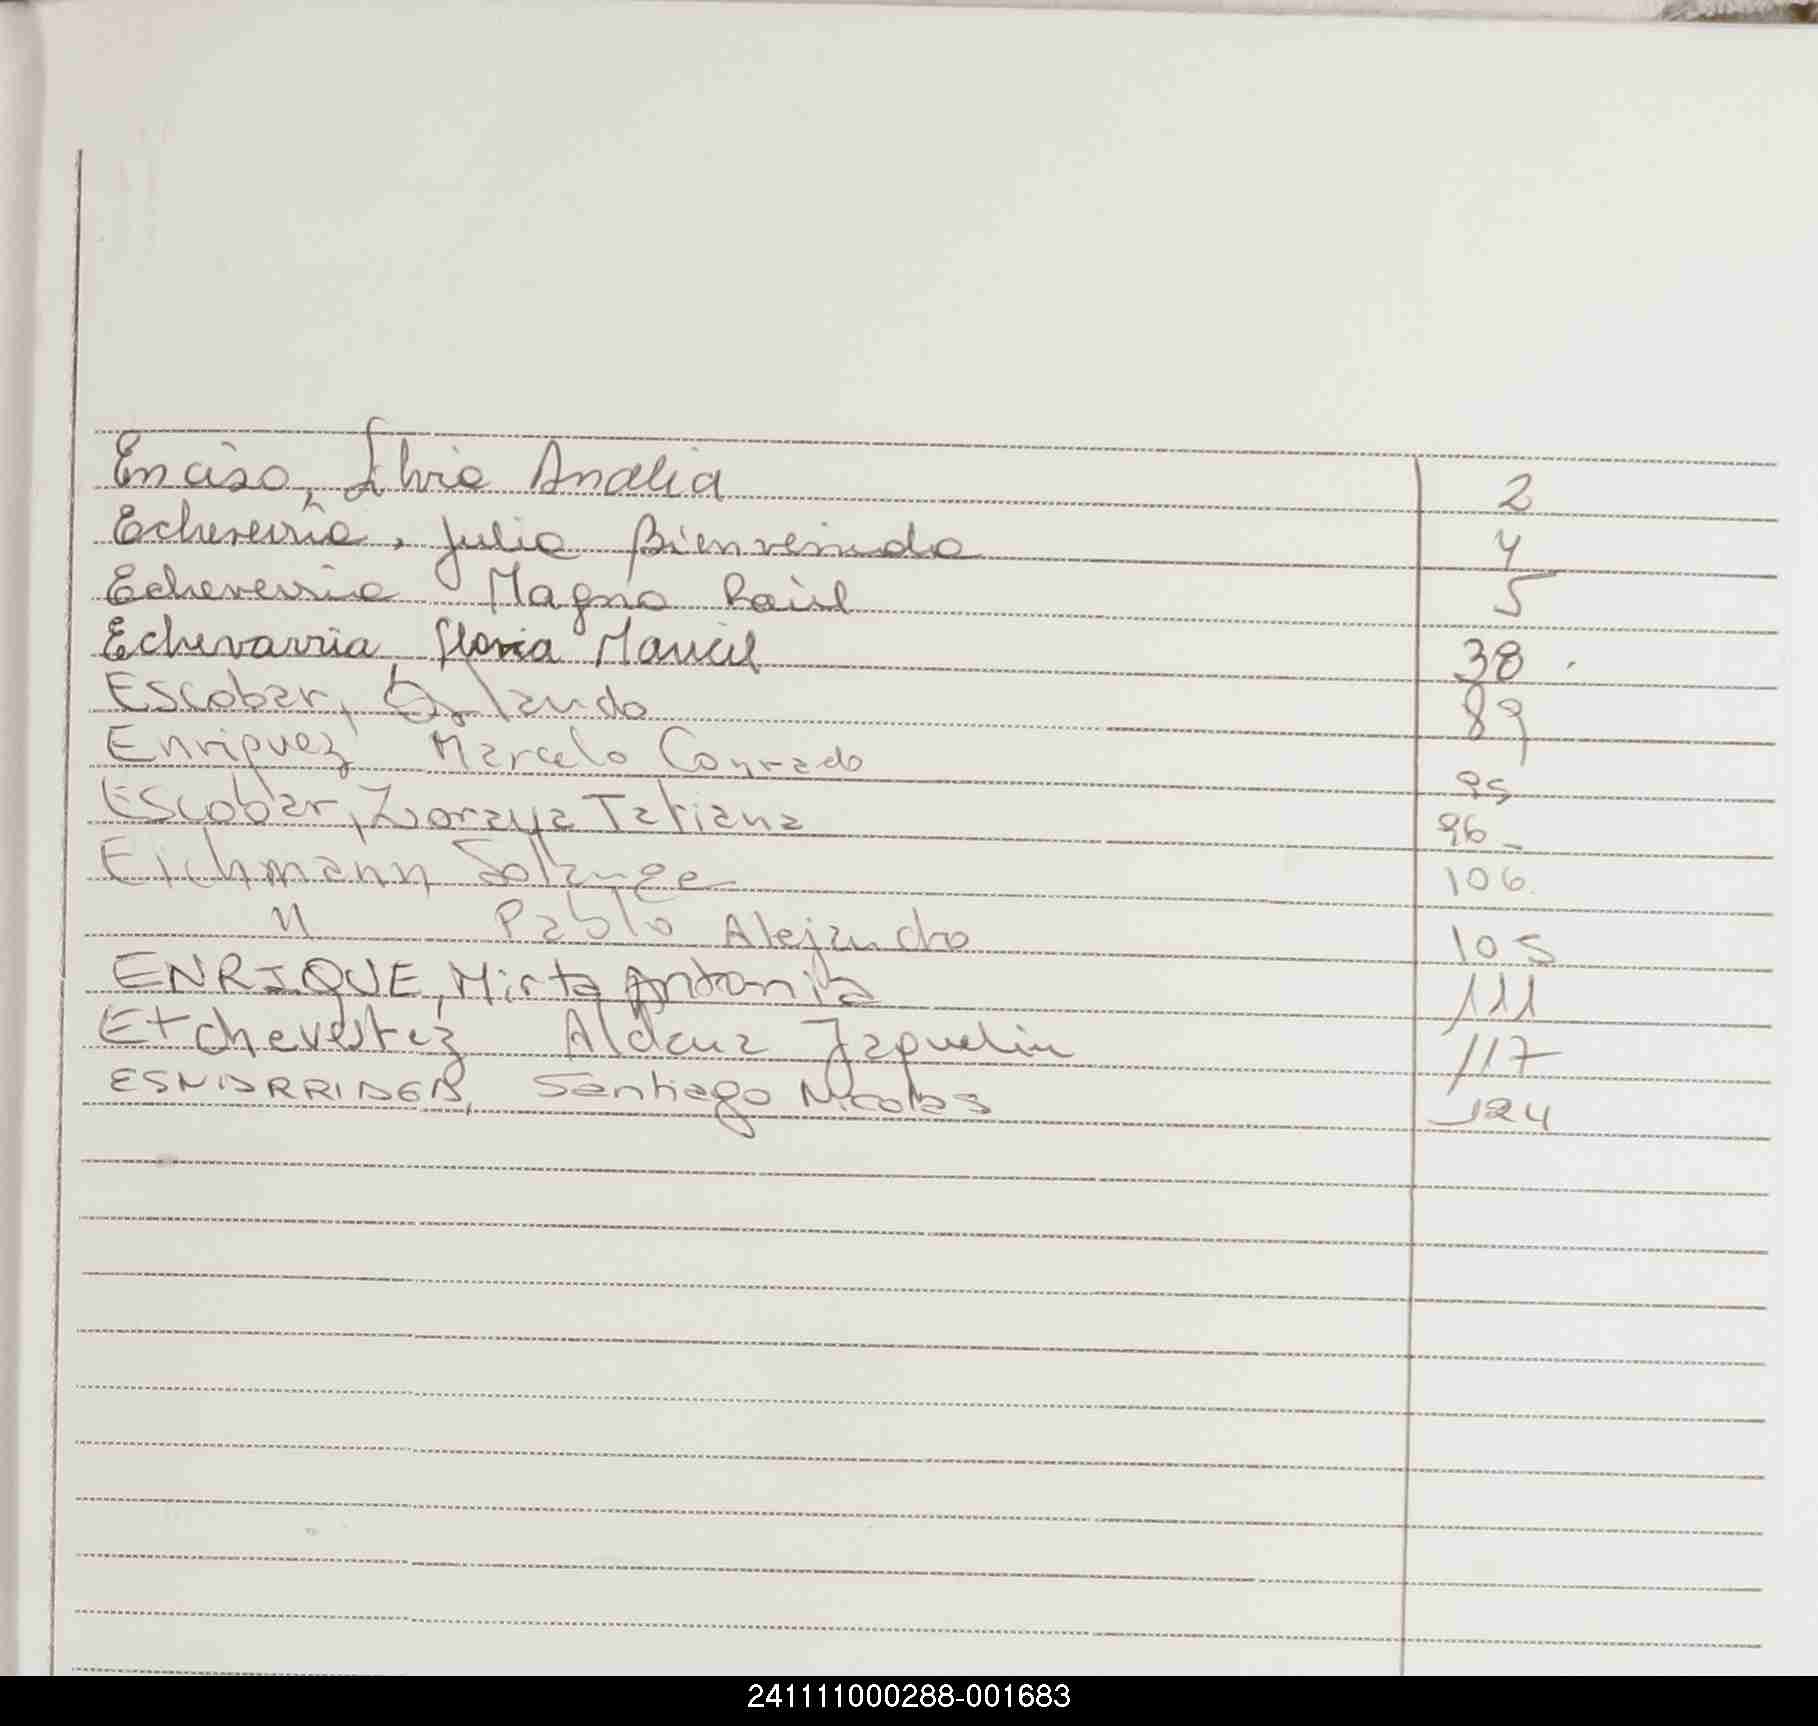 Enciso, Silvia Analia 2
Echeverria, Julia Bienvenida 4
Echeverria Magno Raúl 5
Echevarria, Gloria Maricel 38
Escobar, Orlando 89
Enriquez Marcelo Conrado 95
Escobar, Zoraya Tatiana 96
Eichmann Solange 106
" Pablo Alejandro 105
ENRIQUE, Mirta Antonia 111
Etchevestez Aldana Jaquelin 117
ESNARRIAGA, Santiago Nicolas 124
241111000288-001683